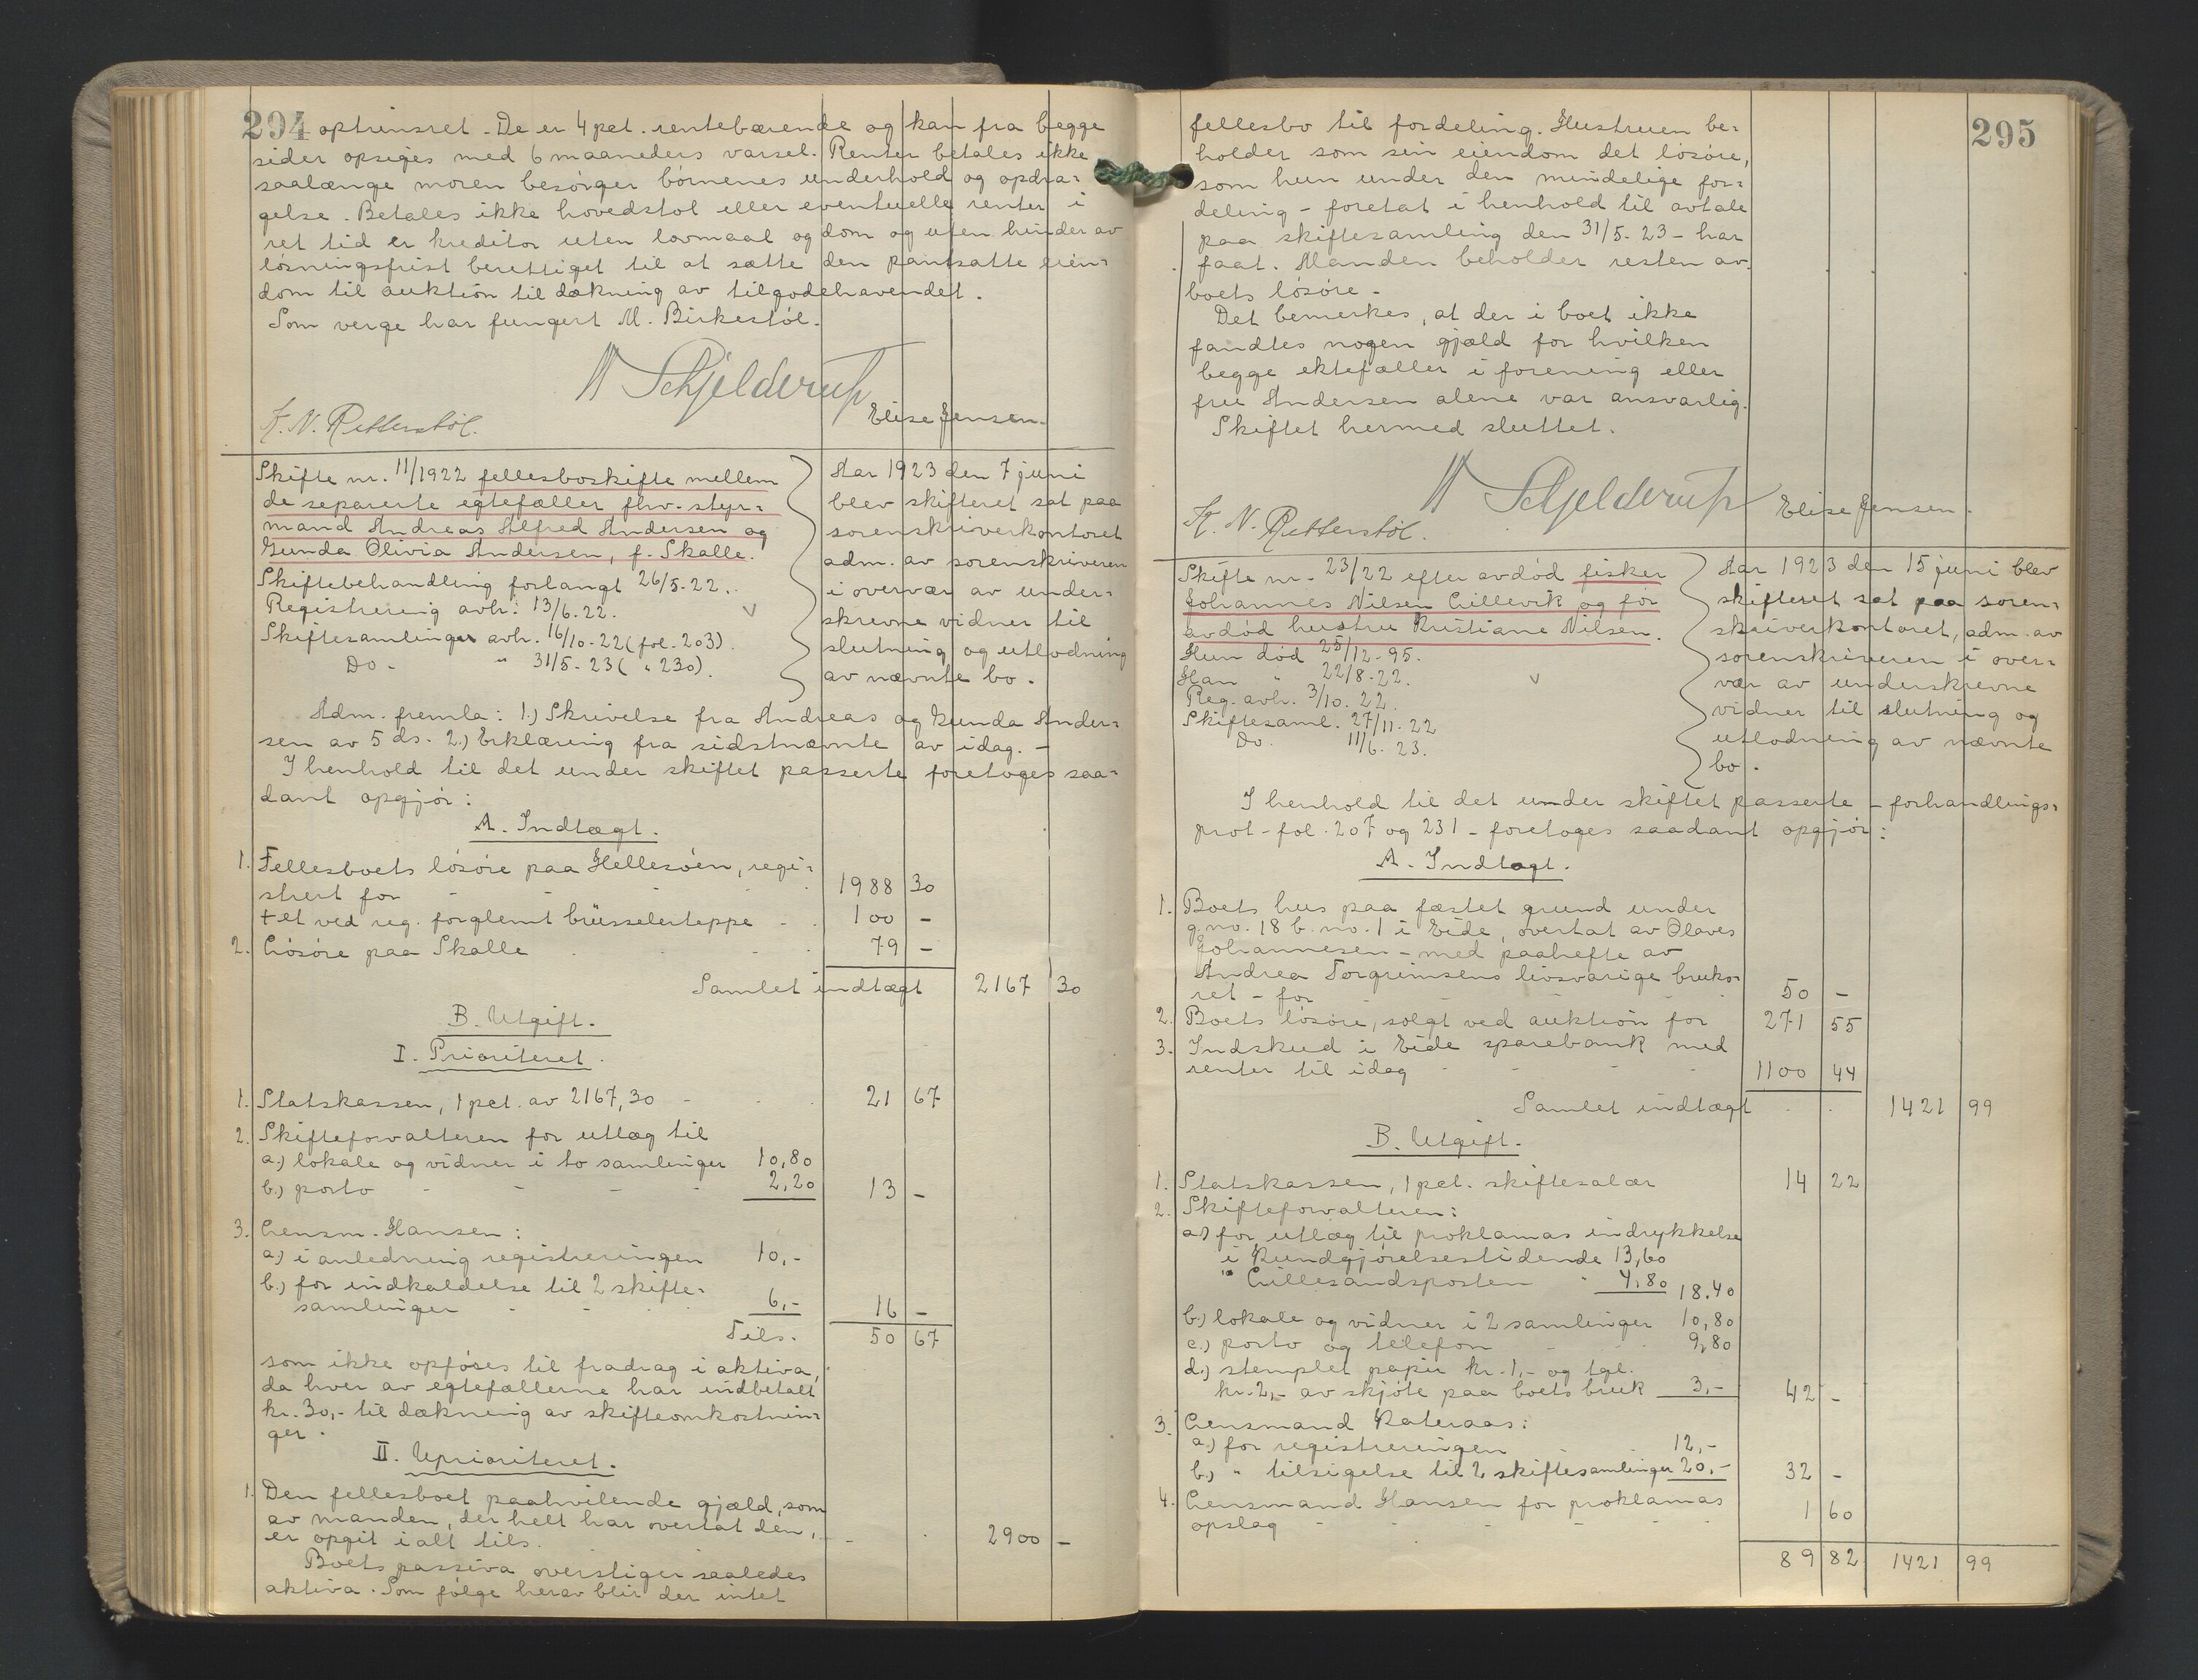 294 optrinsret. De er 4 pct. rentebærende og kan fra begge
sider opsiges med 6 maaneders varsel. Renter betales ikke
saalænge moren besörger börnenes underhold og opdra-
gelse. Betales ikke hovedstol eller eventuelle renter i
ret tid er kreditor uten lovmaal og dom og uten hinder av
lösningsfrist berettiget til at sætte den pantsatte eien-
dom til auktion til dækning av tilgodehavendet.
Som verge har fungert M. Birkestöl.
Schjelderup
K. N. Retterstöl. Elise Jensen.
Skifte nr. 11/1922 fellesboskifte mellem
de separerte egtefæller fhv. styr-
mand Andreas Alfred Andersen og
Gunda Olivia Andersen, f. Skalle.
Skiftebehandling forlangt 26/5-22.
Registrering avh. 13/6.22.
Skiftesamlinger avh. 16/10-22 (fol. 203).
Do - " 31/5-23 ( " 230).
Aar 1923 den 7 juni
blev skifteret sat paa
sorenskriverkontoret
adm. av sorenskriveren
i overvær av under-
skrevne vidner til
slutning og utlodning
av nævnte bo.
Adm. fremla: 1.) Skrivelse fra Andreas og Gunda Ander-
sen av 5 ds. 2.) Erklæring fra sidstnævnte av idag. -
I henhold til det under skiftet passerte foretoges saa-
dant opgjör:
A. Indtægt.
1. Fellesboets lösöre paa Hellesöen, regi-
strert for - - - 1988 30
+ et ved reg. forglemt brüsselerteppe - . 100 -
2. Lösöre paa Skalle . - . 79 -
Samlet indtægt 2167 30
B. Utgift.
I. Prioriteret.
1. Statskassen, 1 pct. av 2167,30 - . . 21 67
2. Skifteforvalteren for utlæg til
a.) lokale og vidner i to samlinger 10,80
b.) porto - - - . 2,20 13 -
3. Lensm. Hansen:
a.) i anledning registreringen 10,-
b.) for indkaldelse til 2 skifte-
samlinger - - . 6,- 16 -
Tils. 50 67
som ikke opföres til fradrag i aktiva,
da hver av egtefællerne har indbetalt
kr. 30,- til dækning av skifteomkostnin-
ger.
II. Uprioriteret.
1. Den fellesboet paahvilende gjæld, som
av manden, der helt har overtat den,
er opgit i alt tils. - . 2900 -
Boets passiva overstiger saaledes
aktiva. Som fölge herav blir der intet
295
fellesbo til fordeling. Hustruen be-
holder som sin eiendom det lösöre,
som hun under den mindelige for-
deling - foretat i henhold til avtale
paa skiftesamling den 31/5-23 - har
faat. Manden beholder resten av
boets lösöre.
Det bemerkes, at der i boet ikke
fandtes nogen gjæld for hvilken
begge ektefæller i forening eller
fru Andersen alene var ansvarlig.
Skiftet hermed sluttet.
Schjelderup
K. N. Retterstöl. Elise Jensen.
Skifte nr. 23/22 efter avdöd fisker
Johannes Nilsen Lillevik og før
avdöd hustru Kristiane Nilsen.
Hun död 25/12-95.
Han " 22/8-22.
Reg. avh. 3/10.22.
Skiftesaml. 27/11-22
Do. 11/6.23.
Aar 1923 den 15 juni blev
skifteret sat paa soren-
skriverkontoret, adm. av
sorenskriveren i over-
vær av underskrevne
vidner til slutning og
utlodning av nævnte
bo.
I henhold til det under skiftet passerte - forhandlings-
prot - fol. 207 og 231 - foretoges saadant opgjör:
A. Indtægt.
1. Boets hus paa fæstet grund under
g.no. 18 b.no. 1 i Eide, overtat av Olaves
Johannesen - med paahefte av
Andrea Torgrimsens livsvarige bruks-
ret - for - - . 50 -
2. Boets lösöre, solgt ved auktion for 271 55
3. Indskud i Eide sparebank med
renter til idag - - - 1100 44
Samlet indtægt . . 1421 99
B. Utgift.
1. Statskassen, 1 pct. skiftesalær 14 22
2. Skifteforvalteren:
a.) for utlæg til proklamas indrykkelse
i Kundgjörelsestidende 13,60
" Lillesandsposten " 4,80 18.40
b.) lokale og vidner i 2 samlinger 10,80
c.) porto og telefon - 9,80
d.) stemplet papir kr. 1,- og tgl.
kr. 2,- av skjöte paa boets bruk 3,- 42 -
3. Lensmand Kateraas:
a.) for registreringen 12,-
b.) " tilsigelse til 2 skiftesamlinger 20,- 32 -
4. Lensmand Hansen for proklamas
opslag - - - - 1 60
89 82 1421 99